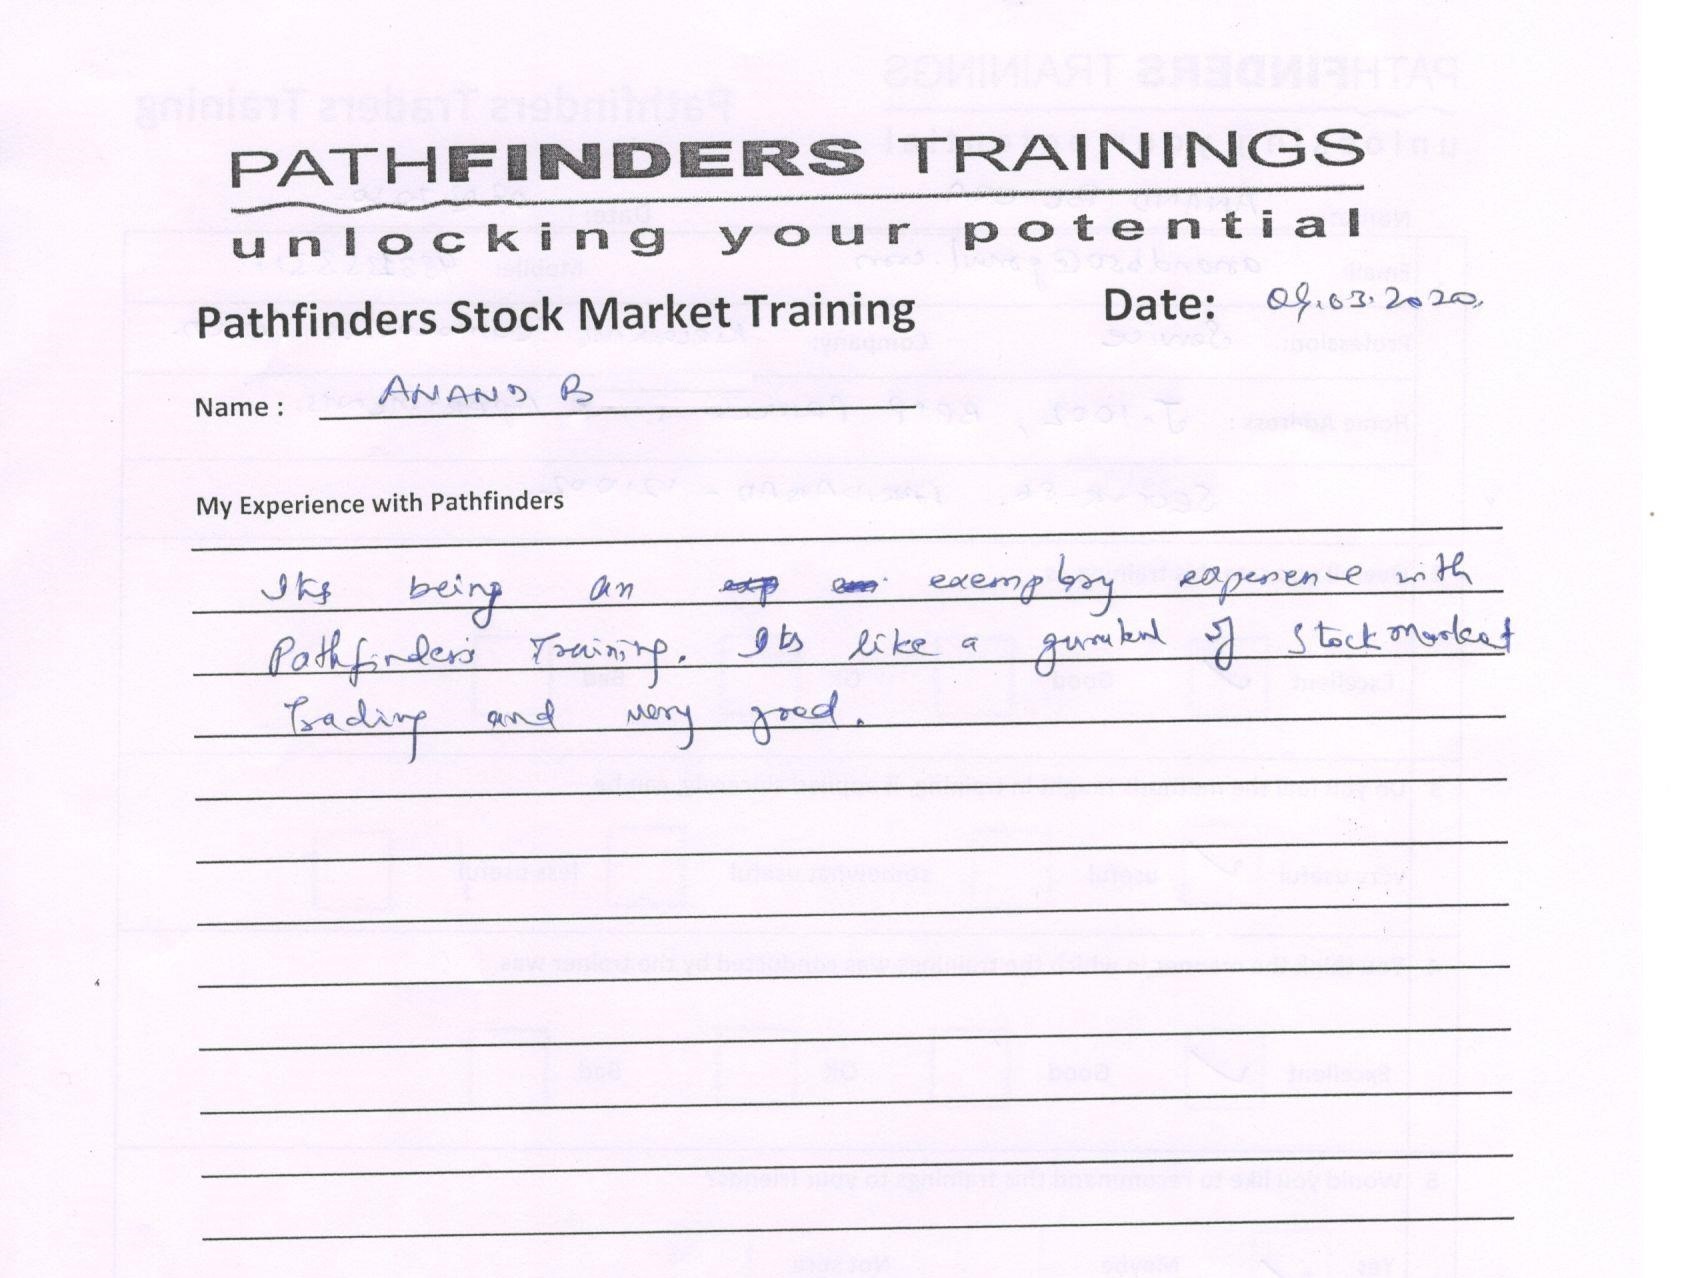 PATHFINDERS TRAININGS
unlocking your potential
Pathfinders Stock Market Training Date: 09.03.2020.
Name : ANAND B
My Experience with Pathfinders
Its being an exemplory experience with
Pathfinders Training. Its like a gurukul of Stock Market
Trading and very good.